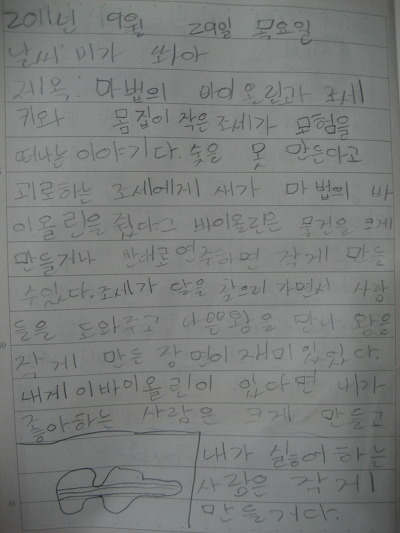 2011년 9월 29일 목요일
날씨: 비가 쏴아
제목: 마법의 바이올린과 조세
키와 몸집이 작은 조세가 모험을
떠나는 이야기다. 숯을 못 만든다고
괴로하는 조세에게 새가 마법의 바
이올린을 줬다 그 바이올린은 물건을 크게
만들거나 반대로 연주하면 작게 만들
수있다. 조세가 달을 찾으러 가면서 사람
들을 도와주고 나쁜왕을 만나 왕을
작게 만든 장면이 재미있었다.
내게 이바이올린이 있다면 내가
좋아하는 사람은 크게 만들고
내가 싫어하는
사람은 작게
만들거다.